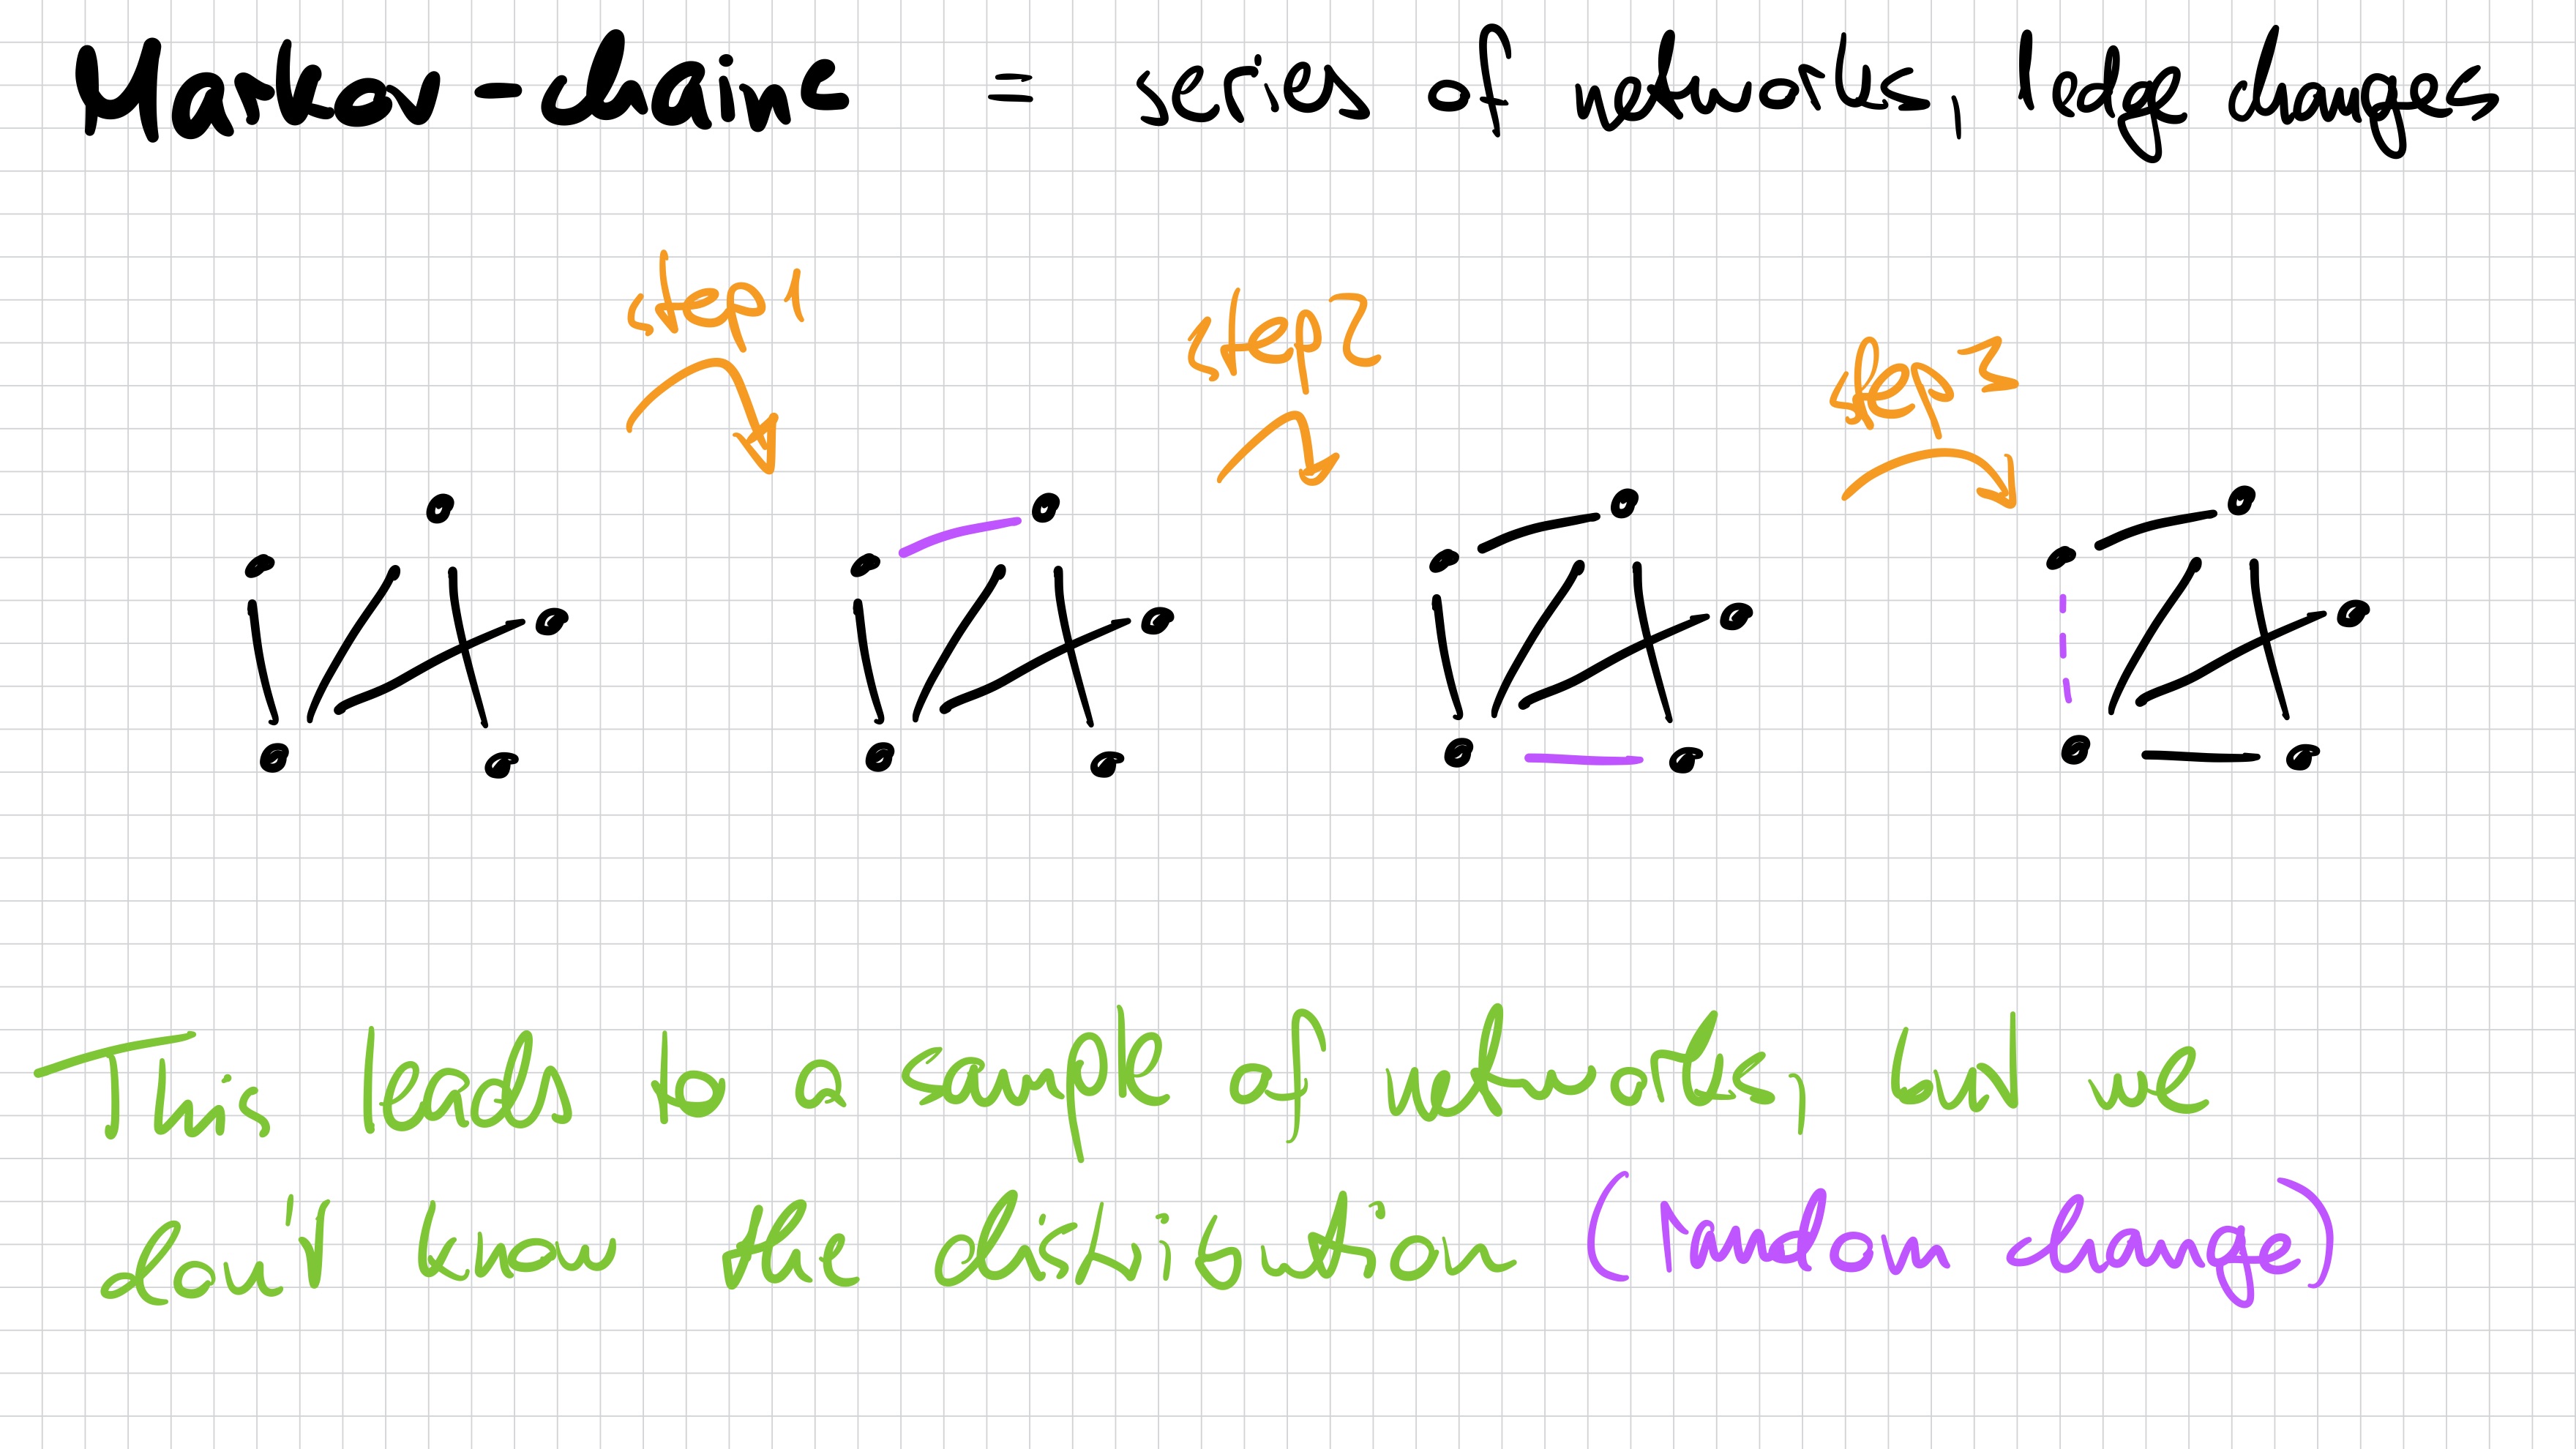 Markov-chains = series of networks, 1 edge changes
step 1
step 2
step 3
This leads to a sample of networks, but we
don't know the distribution (random change)